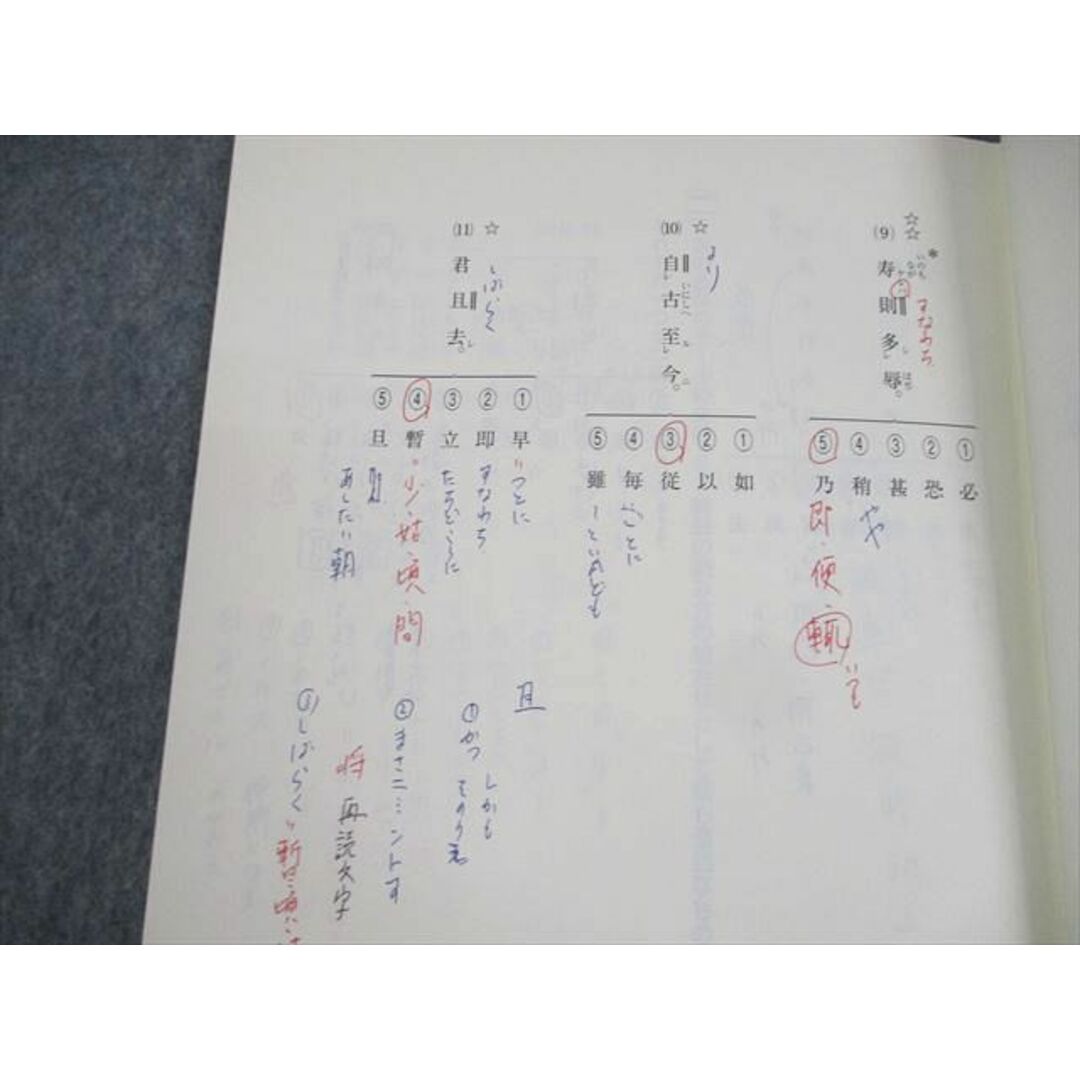 ☆☆
(9) 寿則多辱。
いのち
なが
はぢ
すなわち
① 必
② 恐
③ 甚
④ 稍
や
⑤ 乃
即・便・輒
☆
(10) 自古至今。
いにしへ
より
① 如
② 以
③ 従
④ 毎
ごとに
⑤ 雖
ーといへども
☆
(11) 君且去。
しばらく
① 早
つとに
② 即
すなわち
③ 立
たちどころに
④ 暫
少・姑・頃・間
⑤ 旦
あした
朝
且
① かつ しかも
② まさニ ントす
将 再読文字
③ しばらく
暫
頃